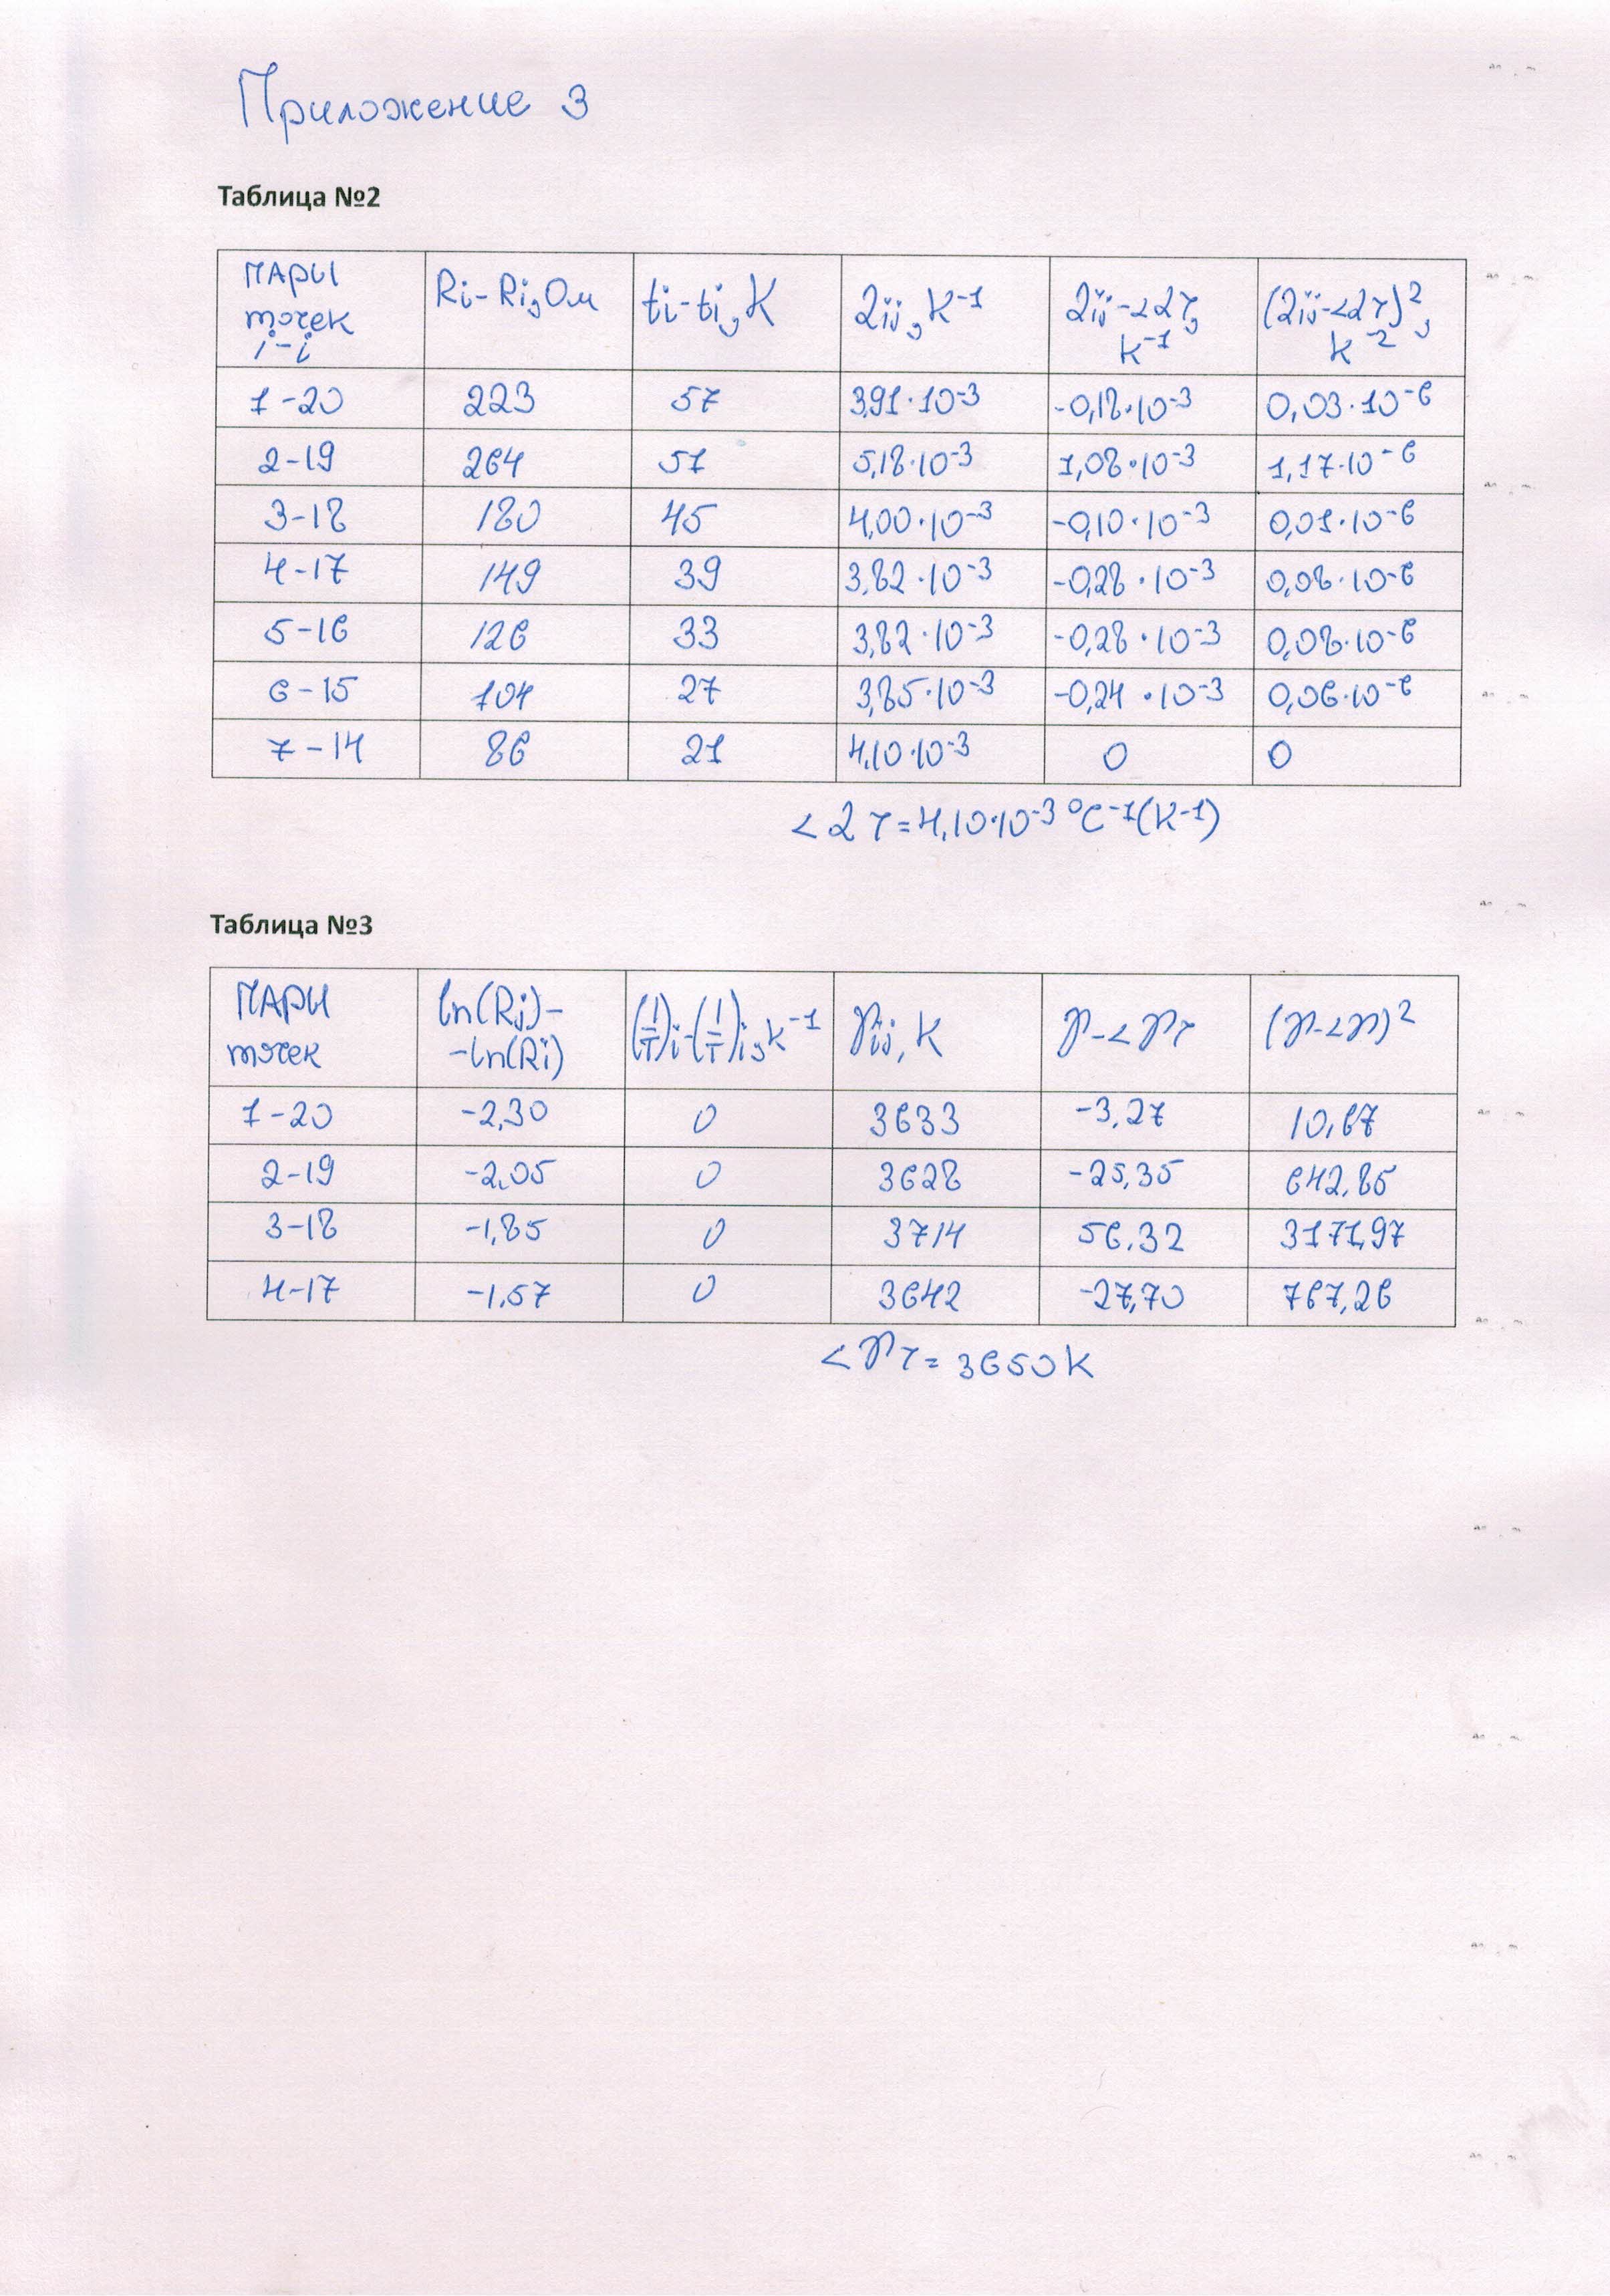 Приложение 3
Таблица №2
ПАРЫ точек i-i | Ri-Ri, Ом | ti-ti, K | αij, K⁻¹ | αij-<α>, K⁻¹ | (αij-<α>)², K⁻²
1-20 | 223 | 57 | 3,91·10⁻³ | -0,18·10⁻³ | 0,03·10⁻⁶
2-19 | 264 | 51 | 5,18·10⁻³ | 1,08·10⁻³ | 1,17·10⁻⁶
3-18 | 180 | 45 | 4,00·10⁻³ | -0,10·10⁻³ | 0,01·10⁻⁶
4-17 | 149 | 39 | 3,82·10⁻³ | -0,28·10⁻³ | 0,08·10⁻⁶
5-16 | 126 | 33 | 3,82·10⁻³ | -0,28·10⁻³ | 0,08·10⁻⁶
6-15 | 104 | 27 | 3,85·10⁻³ | -0,24·10⁻³ | 0,06·10⁻⁶
7-14 | 86 | 21 | 4,10·10⁻³ | 0 | 0
<α>=4,10·10⁻³ °C⁻¹(K⁻¹)
Таблица №3
ПАРЫ точек | ln(Rj)--ln(Ri) | (1/T)i-(1/T)i, K⁻¹ | γij, K | γ-<γ> | (γ-<γ>)²
1-20 | -2,30 | 0 | 3633 | -3,27 | 10,67
2-19 | -2,05 | 0 | 3628 | -25,35 | 642,85
3-18 | -1,85 | 0 | 3714 | 56,32 | 3171,97
4-17 | -1,57 | 0 | 3642 | -27,70 | 767,26
<γ>= 3650K